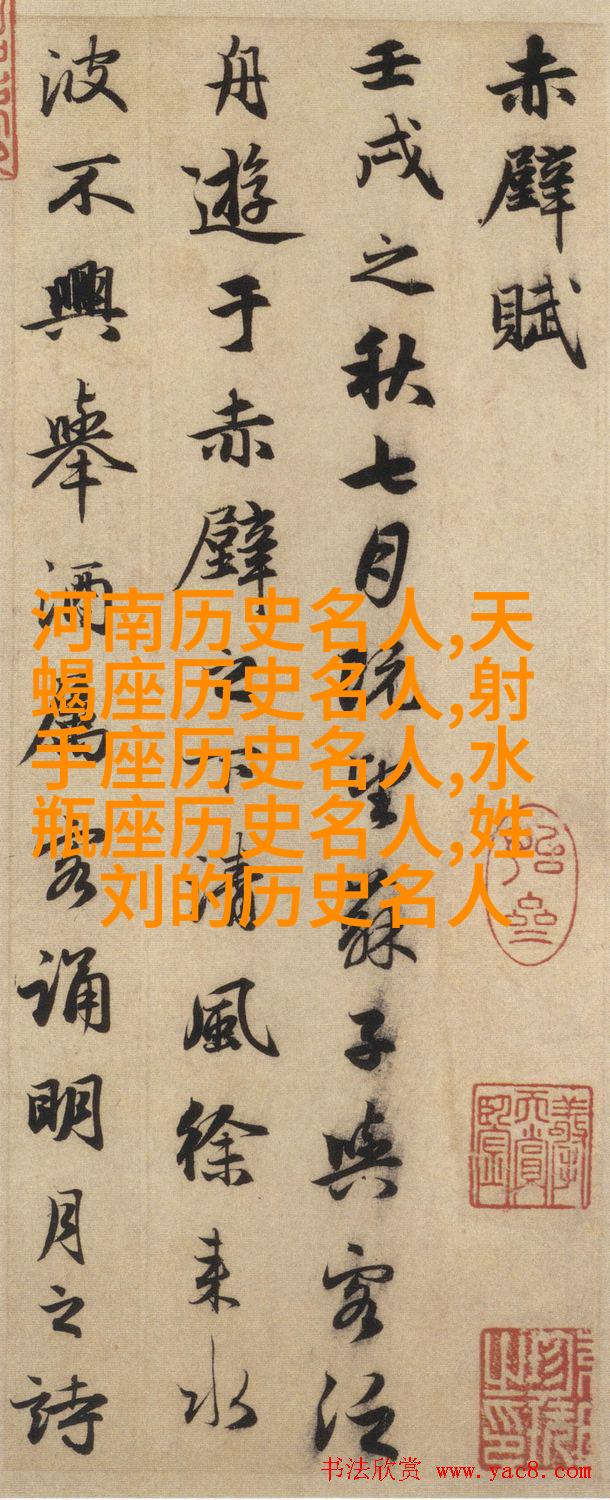 赤壁賦
壬戌之秋七月既望蘇子與客泛
舟遊于赤壁之下清風徐来水
波不興舉酒屬客誦明月之詩
河南历史名人,天
蝎座历史名人,射
手座历史名人,水
瓶座历史名人,姓
刘的历史名人
书法欣赏 www.yac8.com